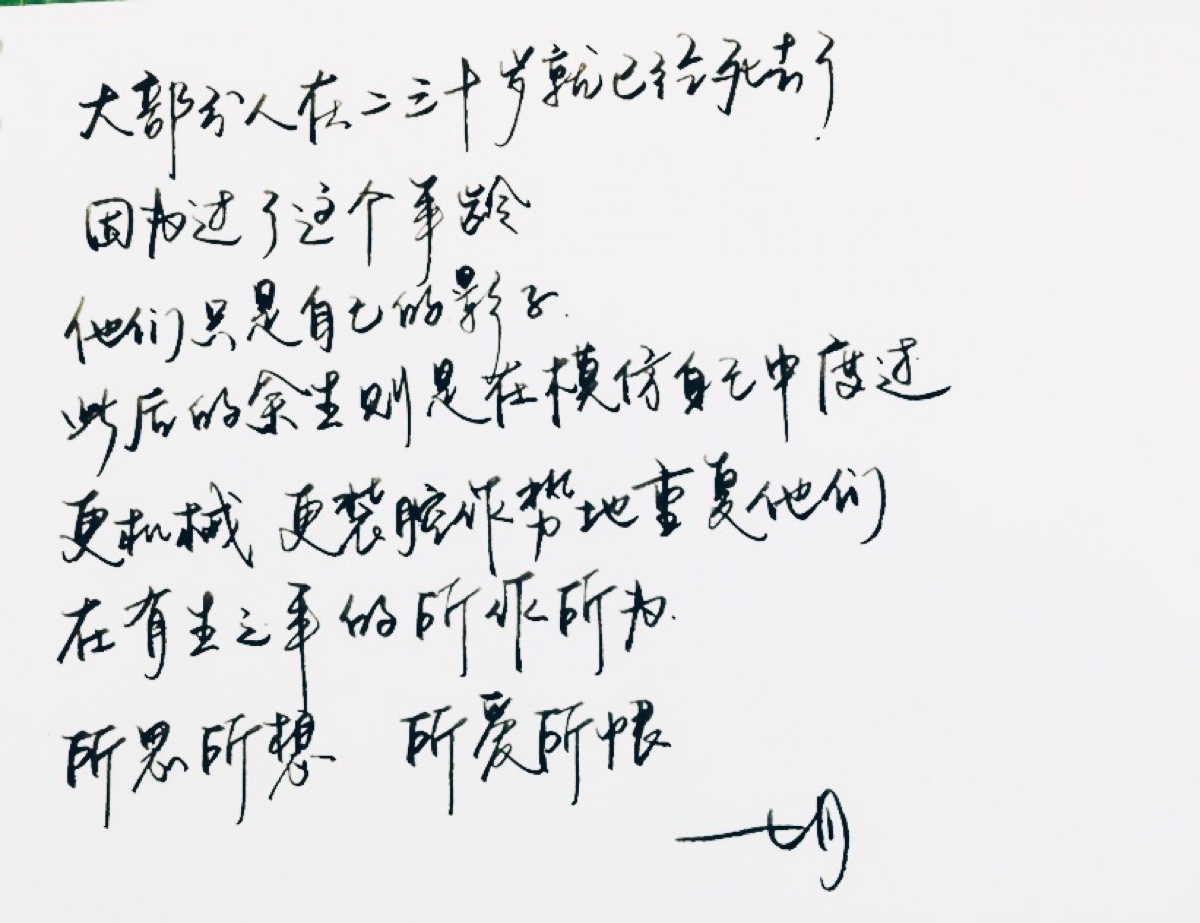 大部分人在二三十岁就已经死去了
因为过了这个年龄
他们只是自己的影子.
此后的余生则是在模仿自己中度过
更机械 更装腔作势地重复他们
在有生之年的所作所为.
所思所想 所爱所恨
——七月